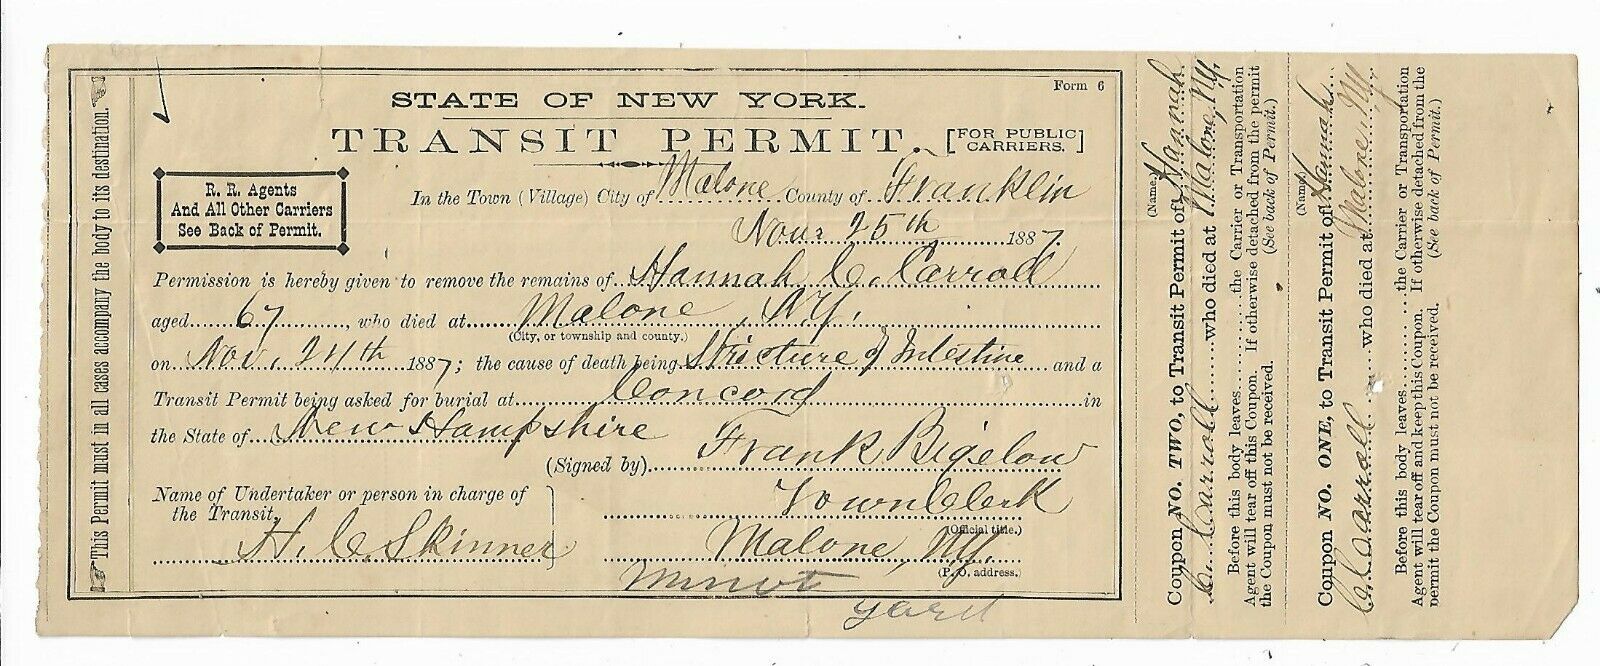 Form 6
STATE OF NEW YORK.
TRANSIT PERMIT. [FOR PUBLIC CARRIERS.]
R. R. Agents
And All Other Carriers
See Back of Permit.
In the Town (Village) City of Malone County of Franklin
Novr 25th 1887.
Permission is hereby given to remove the remains of Hannah C. Carroll
aged 67, who died at Malone, NY.
(City, or township and county.)
on Nov. 24th 1887; the cause of death being Stricture of Intestine and a
Transit Permit being asked for burial at Concord in
the State of New Hampshire
(Signed by) Frank Bigelow
Name of Undertaker or person in charge of
the Transit,
H. C. Skinner
Town Clerk
(Official title.)
Malone NY.
(P. O. address.)
Minot
yard
This Permit must in all cases accompany the body to its destination.
(Name)
Coupon NO. TWO, to Transit Permit of Hannah
C. Carroll who died at Malone, NY.
Before this body leaves the Carrier or Transportation
Agent will tear off this Coupon. If otherwise detached from the permit
the Coupon must not be received. (See back of Permit.)
(Name)
Coupon NO. ONE, to Transit Permit of Hannah
C. Carroll who died at Malone NY
Before this body leaves the Carrier or Transportation
Agent will tear off and keep this Coupon. If otherwise detached from the
permit the Coupon must not be received. (See back of Permit.)